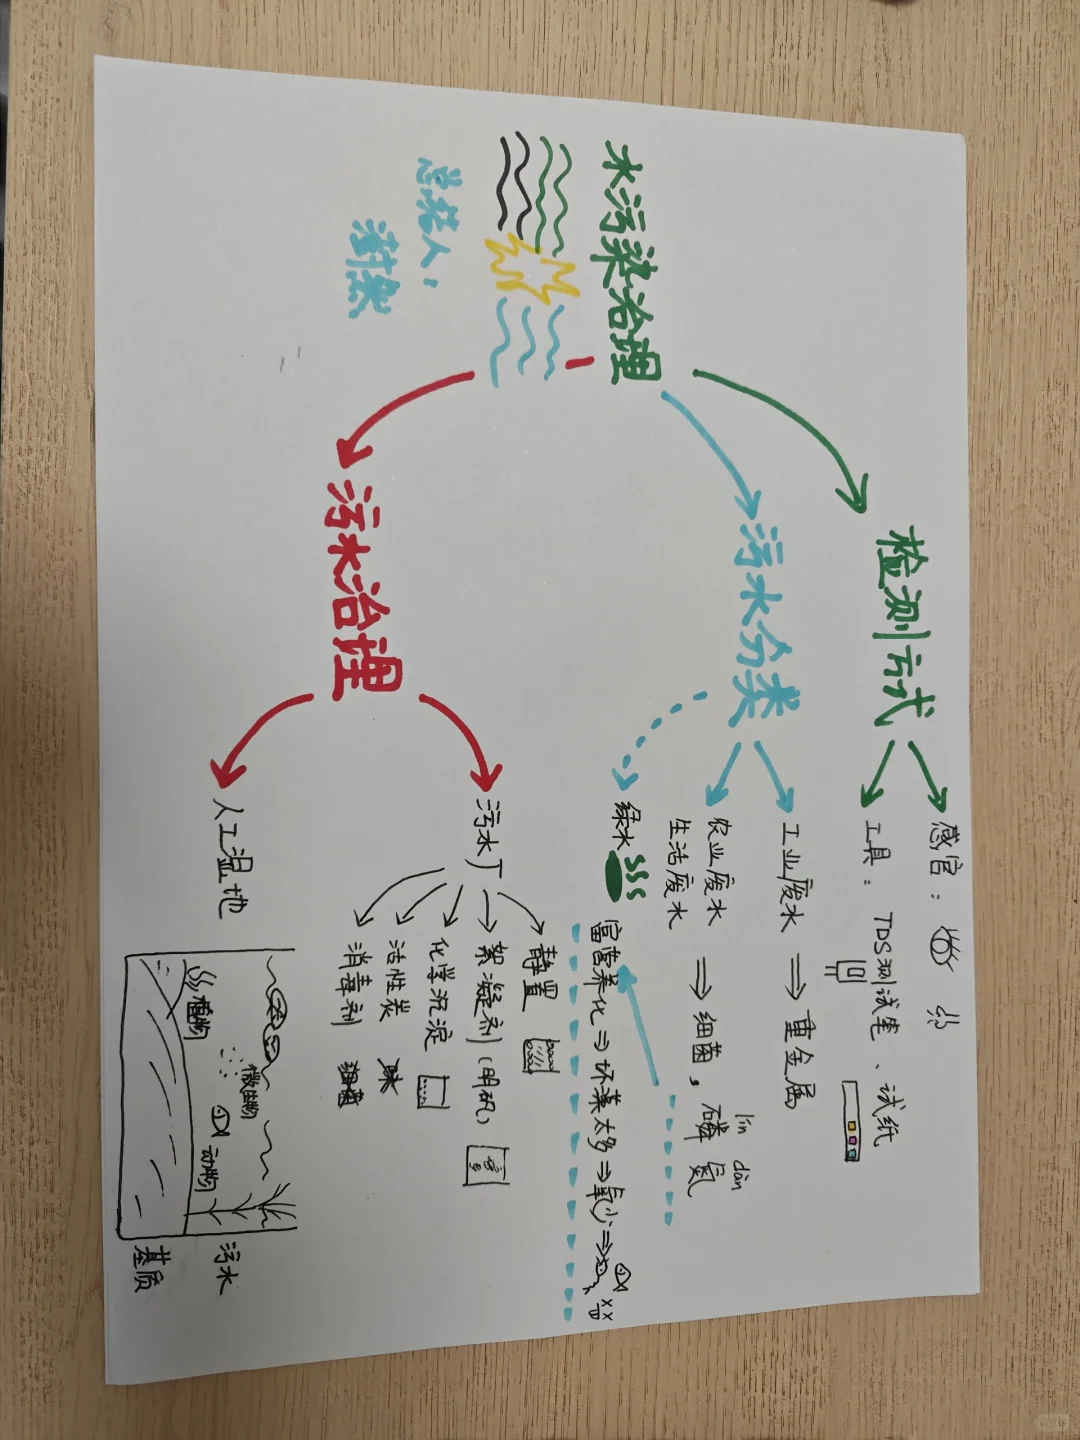 水污染治理
总结人：
检测方式
感官：
工具： TDS测试笔、试纸
污水分类
工业废水 ⇒ 重金属
农业废水
生活废水 ⇒ 细菌，磷 氮
lín dàn
绿水
富营养化 ⇒ 坏藻太多 ⇒ 氧少 ⇒
污水治理
污水厂
静置
絮凝剂（明矾）
化学沉淀
活性炭 味
消毒剂 细菌
人工湿地
植物
微生物
动物
污水
基质